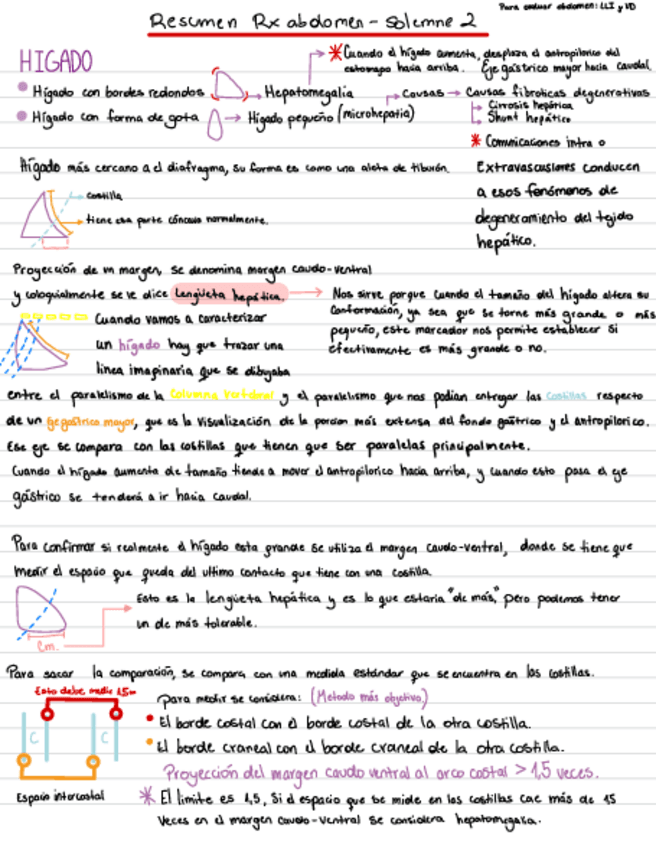 Para evaluar abdomen: LLI y VD
Resumen Rx abdomen - Solemne 2
HIGADO
Hígado con bordes redondos → Hepatomegalia
* Cuando el hígado aumenta, desplaza el antropilorico del
estomago hacia arriba. Eje gástrico mayor hacia caudal.
Hígado con forma de gota → Hígado pequeño (microhepatia)
Causas → Causas fibroticas degenerativas
Cirrosis hepática
Shunt hepático
* Comunicaciones intra o
Extravasculares conducen
a esos fenómenos de
degeneramiento del tejido
hepático.
Hígado más cercano a el diafragma, su forma es como una aleta de tiburón.
Costilla
tiene esa parte cóncava normalmente.
Proyección de un margen, se denomina margen caudo-ventral
y coloquialmente se le dice lengüeta hepática.
Nos sirve porque cuando el tamaño del hígado altera su
conformación, ya sea que se torne más grande o más
pequeño, este marcador nos permite establecer si
efectivamente es más grande o no.
Cuando vamos a caracterizar
un hígado hay que trazar una
linea imaginaria que se dibujaba
entre el paralelismo de la columna vertebral y el paralelismo que nos podian entregar las costillas respecto
de un eje gastrico mayor, que es la visualización de la porcion más extensa del fondo gástrico y el antropilorico.
Ese eje se compara con las costillas que tienen que ser paralelas principalmente.
Cuando el hígado aumenta de tamaño tiende a mover el antropilorico hacia arriba, y cuando esto pasa el eje
gástrico se tenderá a ir hacia caudal.
Para confirmar si realmente el hígado esta grande se utiliza el margen caudo-ventral, donde se tiene que
medir el espacio que queda del ultimo contacto que tiene con una costilla.
Esto es la lengüeta hepática y es lo que estaria "de más," pero podemos tener
un de más tolerable.
Cm.
Para sacar la comparación, se compara con una medida estándar que se encuentra en las costillas.
Esto debe medir 1.5
C C
Espacio intercostal
Para medir se considera: (Metodo más objetivo)
El borde costal con el borde costal de la otra costilla.
El borde craneal con el borde craneal de la otra costilla.
Proyección del margen caudo ventral al arco costal > 1,5 veces.
* El limite es 1,5, Si el espacio que se mide en las costillas cae más de 15
veces en el margen caudo-ventral se considera hepatomegalia.